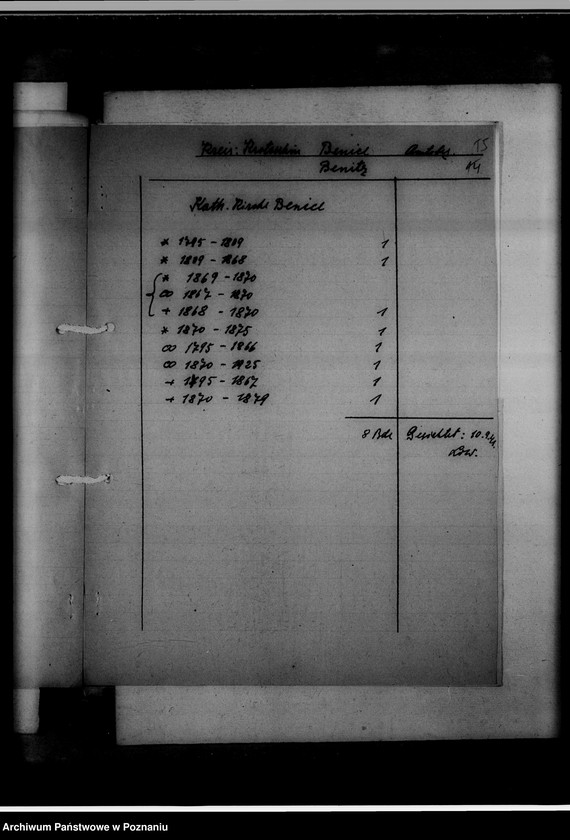 Kreis: Krotoschin Benice 15
Benitz 14
Kath. Kirche Benice
* 1795 - 1809 1
* 1809 - 1868 1
* 1869 - 1870
∞ 1867 - 1870
+ 1868 - 1870 1
* 1870 - 1875 1
∞ 1795 - 1866 1
∞ 1870 - 1925 1
+ 1795 - 1867 1
+ 1870 - 1879 1
8 Bde Gesichtet: 10.9.
Archiwum Państwowe w Poznaniu